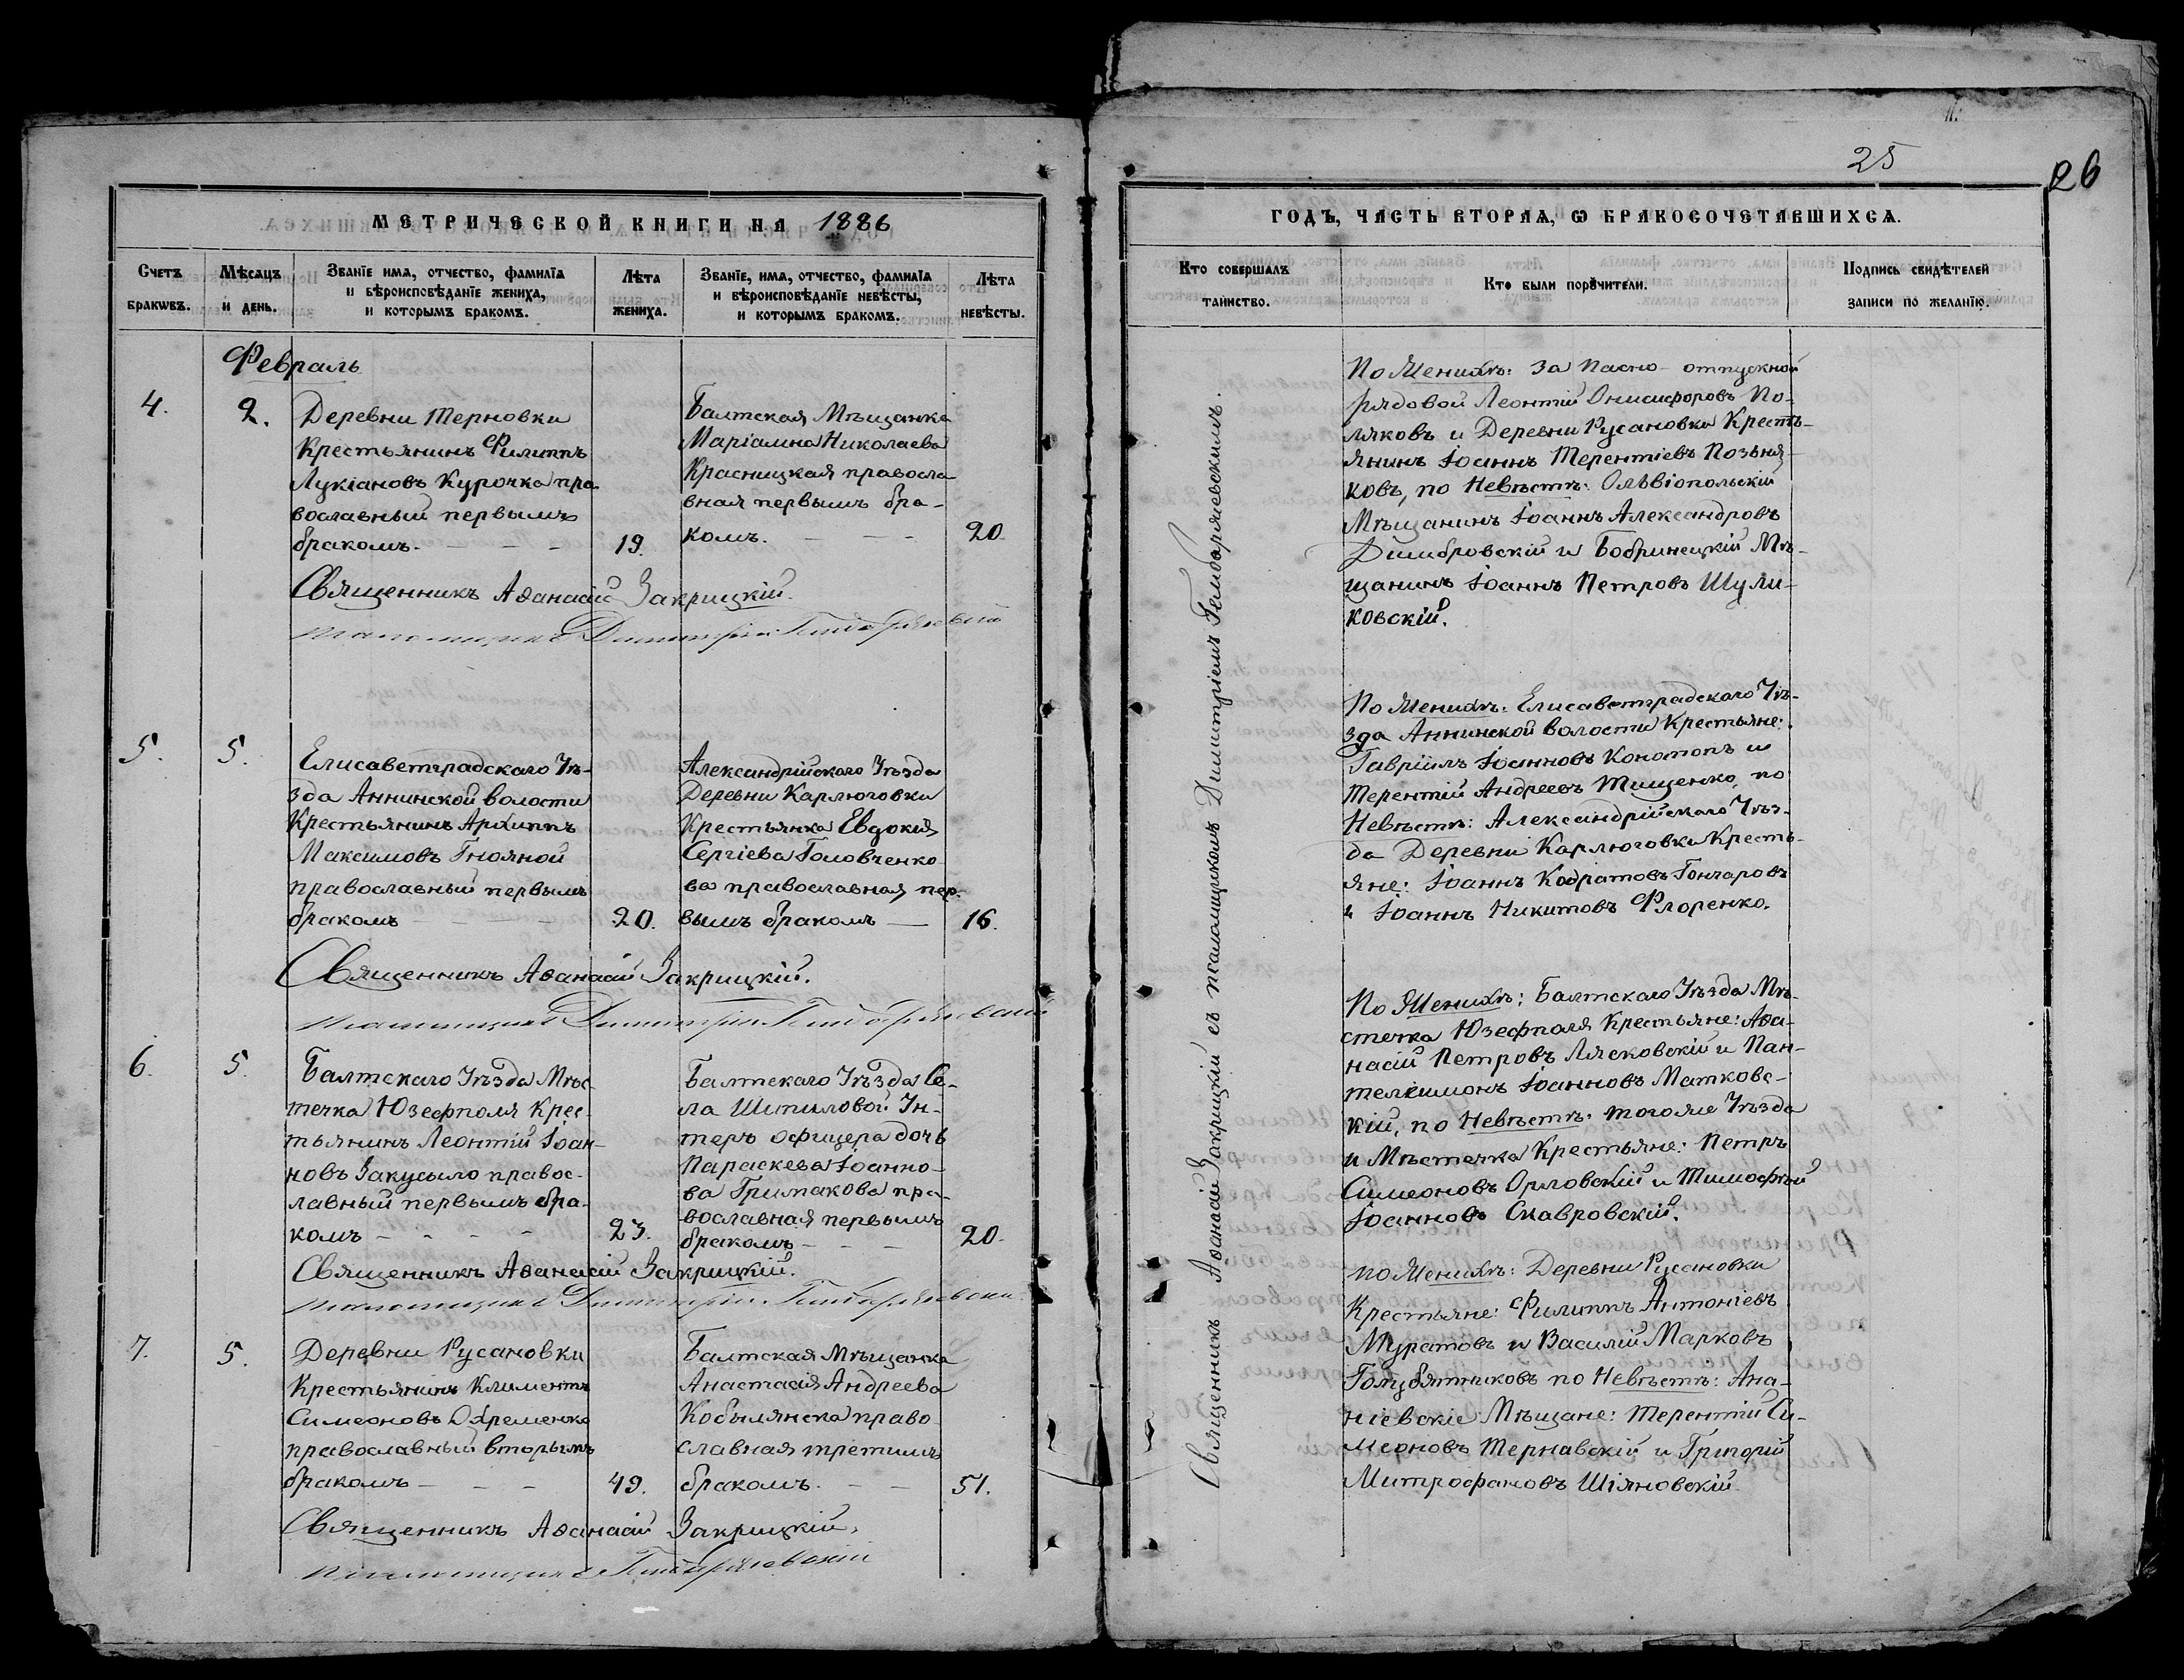 МЕТРИЧЕСКОЙ КНИГИ НА 1886
Счетъ браковъ.
Мѣсяцъ и день.
Званїе имя, отчество, фамилїя
и вѣроисповѣданїе жениха,
и которымъ бракомъ.
Лѣта
жениха.
Званїе, имя, отчество, фамилїя
и вѣроисповѣданїе невѣсты,
и которымъ бракомъ.
Лѣта
невѣсты.
Февраль
4.
2.
Деревни Терновки
Крестьянинъ Филиппъ
Лукіановъ Курочка пра
вославный первымъ
бракомъ.
19.
Балтская Мѣщанка
Маріамна Николаева
Красницкая правосла
вная первымъ бра-
комъ.
20
Священникъ Аѳанасій Закрицкій.
5.
5.
Елисаветградскаго Уѣ-
зда Аннинской волости
Крестьянинъ Архиппъ
Максимовъ Гнояной
православный первымъ
бракомъ
20.
Александрійскаго Уѣзда
Деревни Карлюговки
Крестьянка Евдокія
Сергіева Головченко
ва православная пер-
вымъ бракомъ
16.
Священникъ Аѳанасій Закрицкій.
6.
5.
Балтскаго Уѣзда Мѣс
течка Юзефполя Крес-
тьянинъ Леонтій Іоан-
новъ Закусыло правос-
лавный первымъ бра-
комъ
23.
Балтскаго Уѣзда Се-
ла Шипиловой Ун-
теръ офицера дочь
Параскева Іоанно-
ва Гримакова пра-
вославная первымъ
бракомъ
20.
Священникъ Аѳанасій Закрицкій.
7.
5.
Деревни Русановки
Крестьянинъ Климентъ
Симеоновъ Охременко
православный вторымъ
бракомъ
49.
Балтская Мѣщанка
Анастасія Андреева
Кобылянска право
славная третимъ
бракомъ.
51.
Священникъ Аѳанасій Закрицкій.
25
26
ГОДЪ, ЧАСТЬ ВТОРАЯ, Ѡ БРАКОСОЧЕТАВШИХСЯ.
Кто совершалъ
таинство.
Кто были порꙋчители.
Подпись свидѣтелей
записи по желанїю.
Священникъ Аѳанасій Закрицкій съ псаломщикомъ Димитріемъ Гембаржевскимъ.
По Женихѣ: За пасно-отпускной
рядовой Леонтій Онисифоровъ По-
ляковъ и Деревни Русановки Кресть-
янинъ Іоаннъ Терентіевъ Позьня-
ковъ, по Невѣстѣ: Ольвіопольскій
Мѣщанинъ Іоаннъ Александровъ
Димбровскій и Бобринецкій Мѣ-
щанинъ Іоаннъ Петровъ Шули-
ковскій.
По Женихѣ: Елисаветградскаго Уѣ-
зда Аннинской волости Крестьяне:
Гавріилъ Іоанновъ Конотопъ и
Терентій Андреевъ Тищенко, по
Невѣстѣ: Александрійскаго Уѣз-
да Деревни Карлюговки Кресть-
яне: Іоаннъ Кодратовъ Гончаровъ
и Іоаннъ Никитовъ Флоренко.
По Женихѣ: Балтскаго Уѣзда Мѣ-
стечка Юзефполя Крестьяне: Аѳа-
насій Петровъ Лясковскій и Пан-
телеимонъ Іоанновъ Матковс-
кій, по Невѣстѣ: тогоже Уѣзда
и Мѣстечка Крестьяне: Петръ
Симеоновъ Орловскій и Тимофѣй
Іоанновъ Скавровскій.
по Женихѣ: Деревни Русановки
Крестьяне: Филиппъ Антоніевъ
Муратовъ и Василій Марковъ
Голубятниковъ по Невѣстѣ: Ана-
ніевскіе Мѣщане: Терентій Си-
меоновъ Тернавскій и Григорій
Митрофановъ Шіяновскій